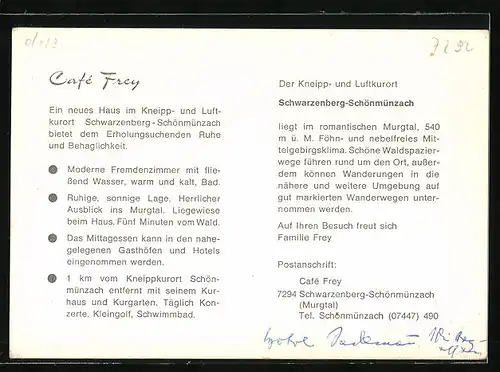 Café Frey
Ein neues Haus im Kneipp- und Luft-
kurort Schwarzenberg-Schönmünzach
bietet dem Erholungsuchenden Ruhe
und Behaglichkeit.
Moderne Fremdenzimmer mit flie-
ßend Wasser, warm und kalt, Bad.
Ruhige, sonnige Lage. Herrlicher
Ausblick ins Murgtal. Liegewiese
beim Haus. Fünf Minuten vom Wald.
Das Mittagessen kann in den nahe-
gelegenen Gasthöfen und Hotels
eingenommen werden.
1 km vom Kneippkurort Schön-
münzach entfernt mit seinem Kur-
haus und Kurgarten. Täglich Kon-
zerte. Kleingolf, Schwimmbad.
Der Kneipp- und Luftkurort
Schwarzenberg-Schönmünzach
liegt im romantischen Murgtal, 540
m ü. M. Föhn- und nebelfreies Mit-
telgebirgsklima. Schöne Waldspazier-
wege führen rund um den Ort, außer-
dem können Wanderungen in die
nähere und weitere Umgebung auf
gut markierten Wanderwegen unter-
nommen werden.
Auf Ihren Besuch freut sich
Familie Frey
Postanschrift:
Café Frey
7294 Schwarzenberg-Schönmünzach
(Murgtal)
Tel. Schönmünzach (07447) 490